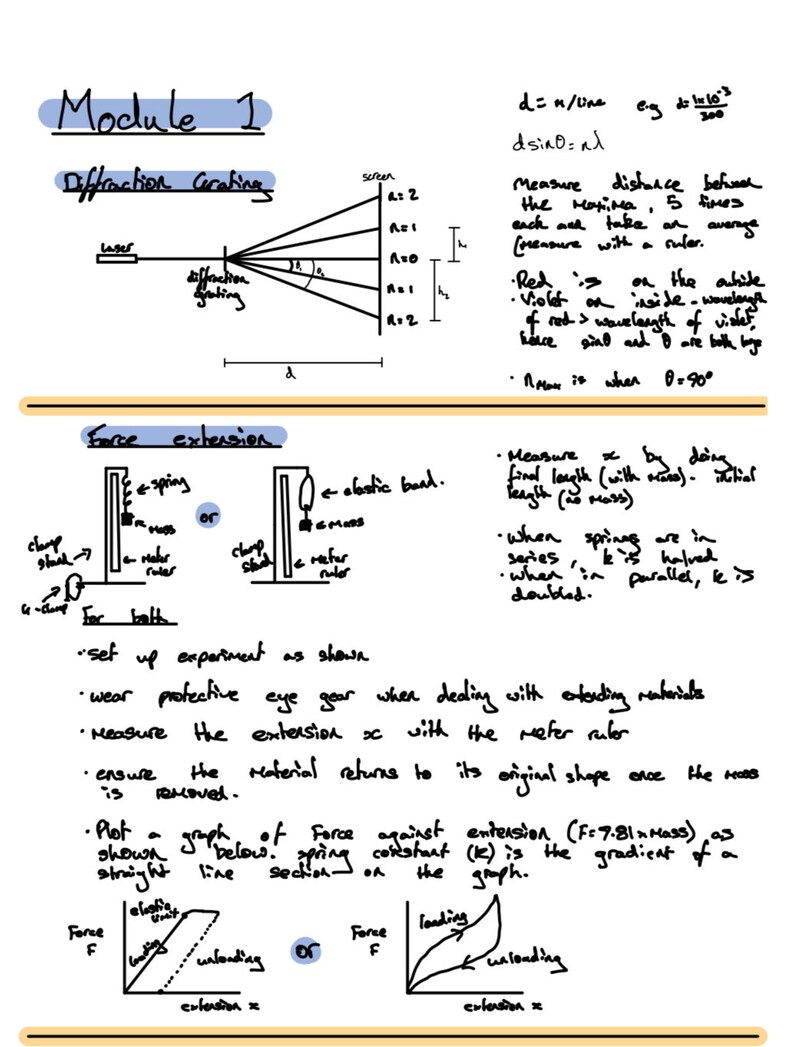 Module 1
Diffraction Grating
screen
n=2
n=1
n=0
n=1
n=2
Laser
diffraction
grating
θ₁
θ₂
h₁
h₂
d
d = n/line e.g d= 1x10⁻³/300
dsinθ=nλ
Measure distance between
the maxima, 5 times
each and take an average
(measure with a ruler.
· Red is on the outside
· Violet on inside - wavelength
of red > wavelength of violet,
hence sinθ and θ are both
· nmax is when θ=90°
Force extension
spring
Mass
clamp
stand
Meter
ruler
G-clamp
or
elastic band.
Mass
clamp
stand
Meter
ruler
· Measure x by doing
final length (with mass) - initial
length (no mass)
· When springs are in
series, k is halved
· when in parallel, k is
doubled.
For both
· set up experiment as shown
· wear protective eye gear when dealing with extending materials
· Measure the extension x with the meter ruler
· ensure the material returns to its original shape once the mass
is removed.
· Plot a graph of Force against extension (F=9.81xMass) as
shown below. spring constant (k) is the gradient of a
straight line section on the graph.
Force
F
elastic
limit
loading
unloading
extension x
or
Force
F
loading
unloading
extension x